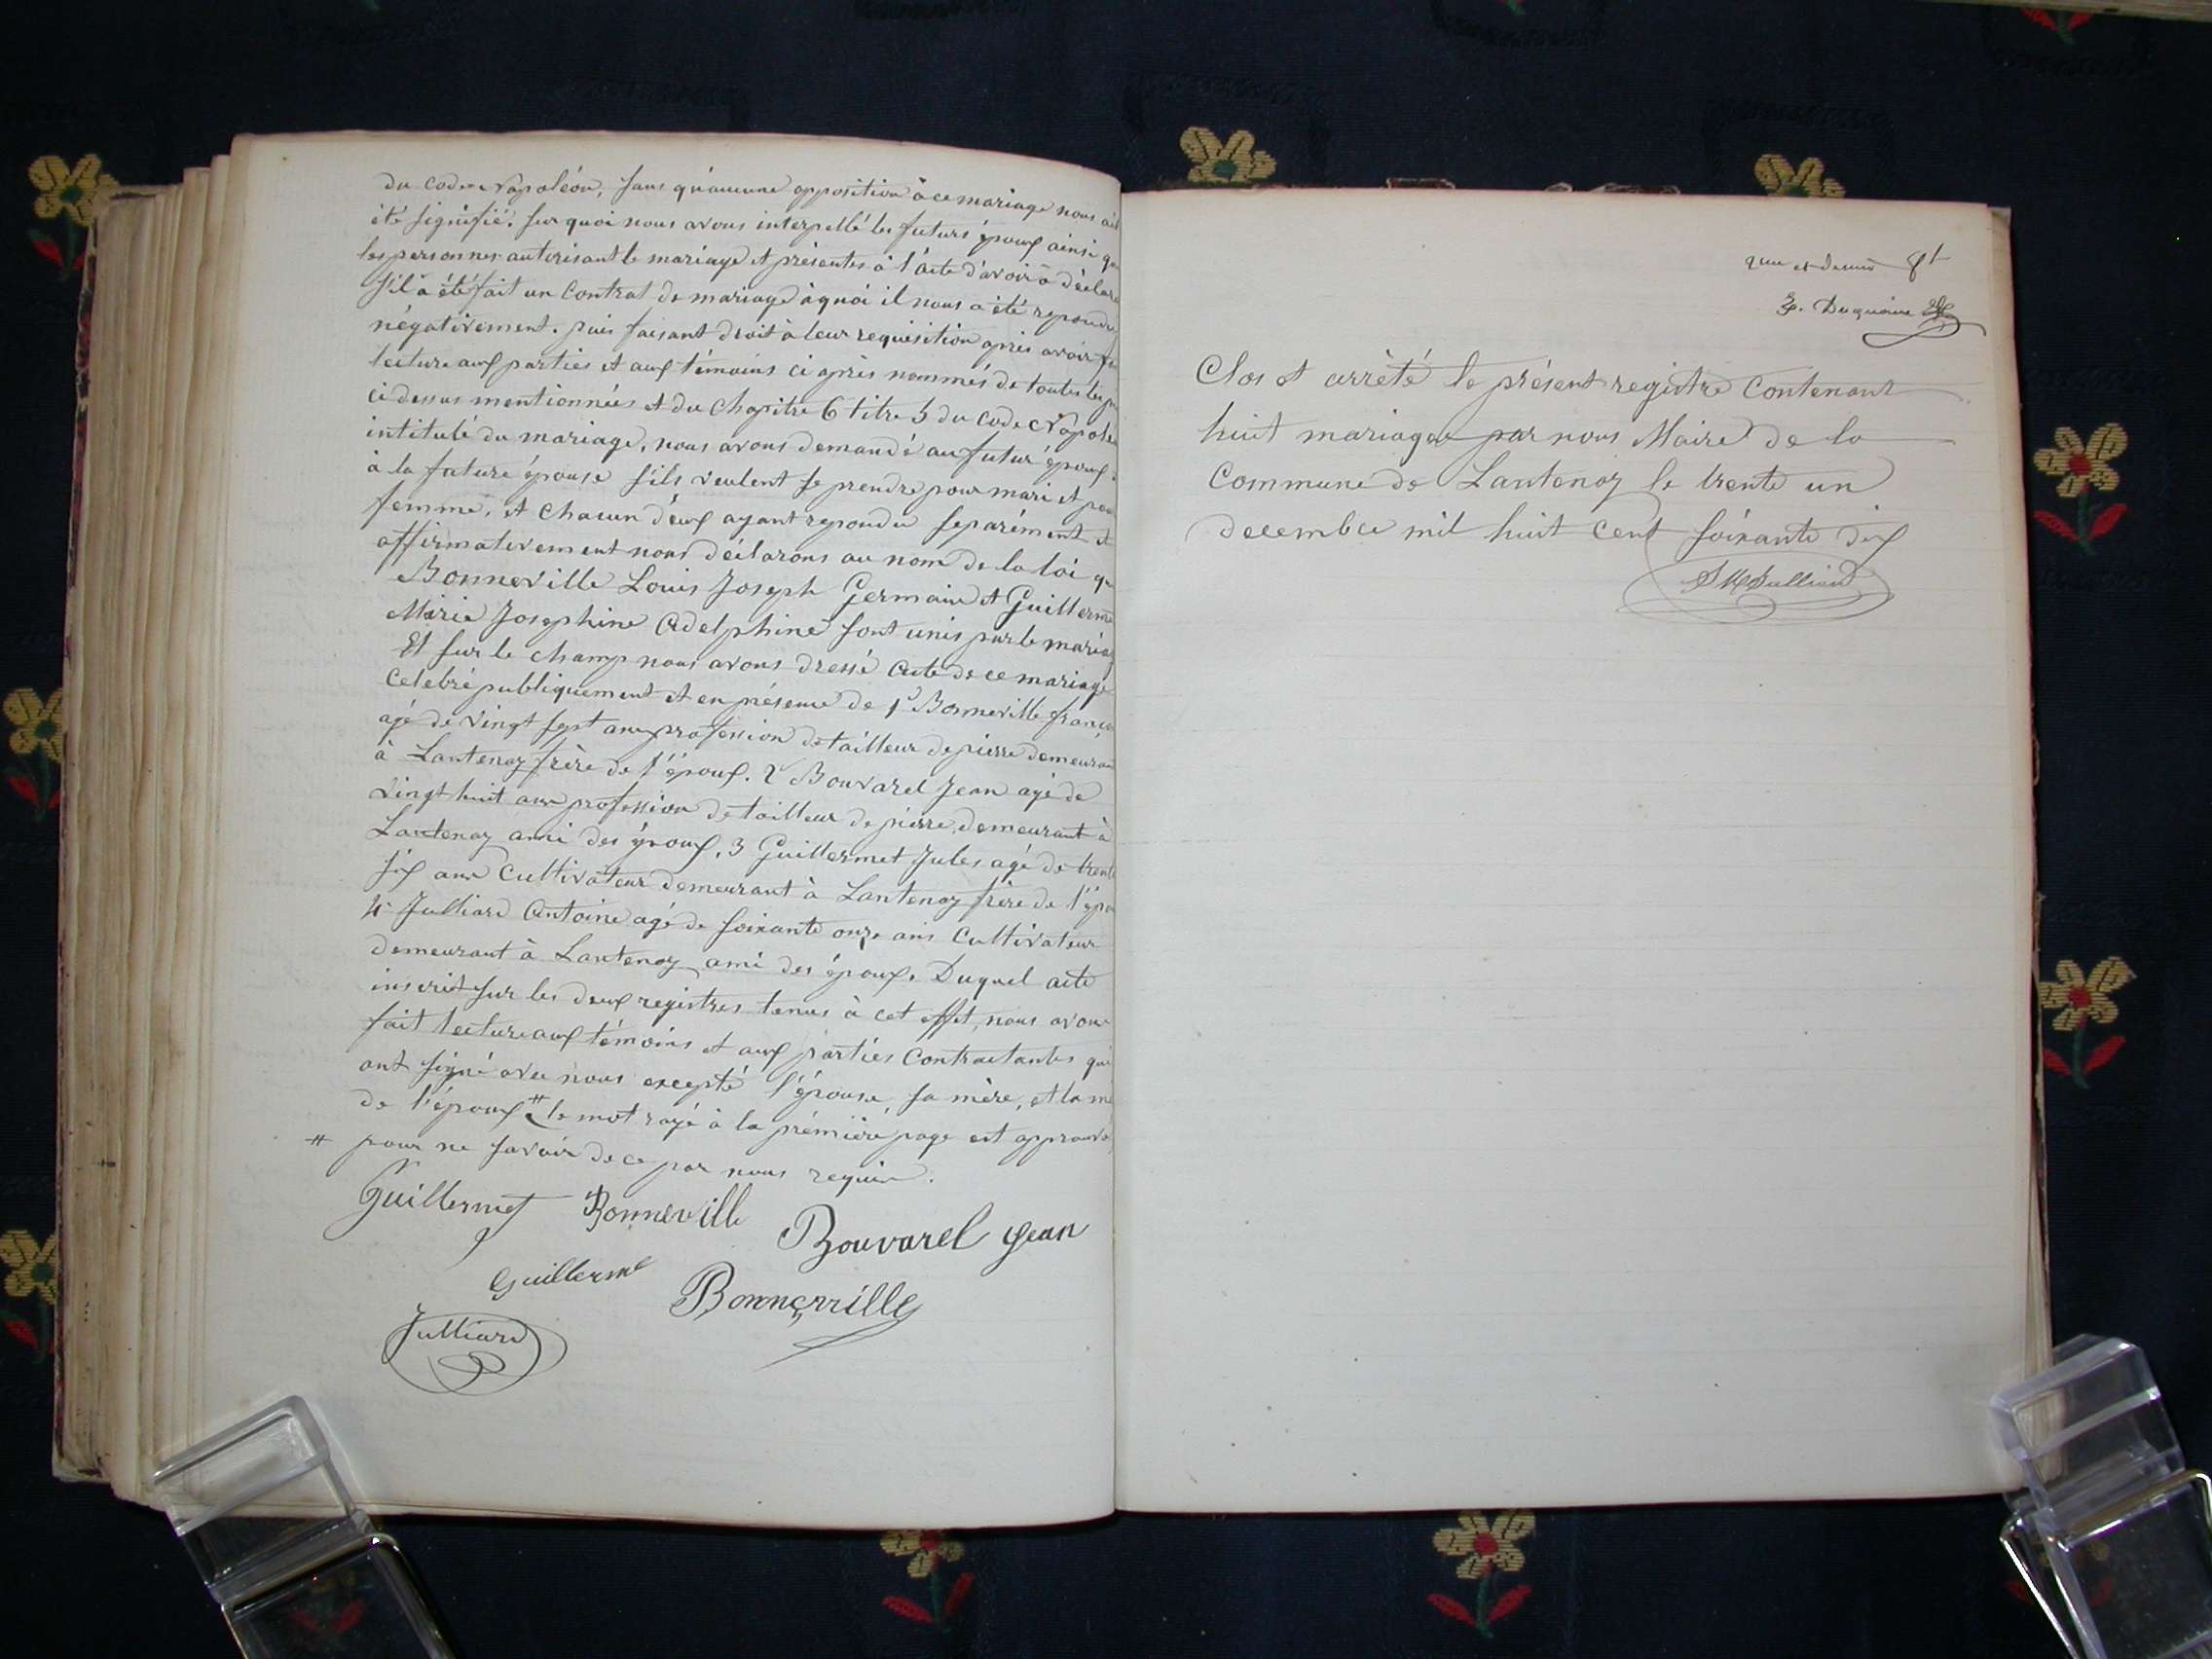 du code Napoléon, sans qu'aucune opposition à ce mariage nous ait
été signifié. sur quoi nous avons interpellé les futurs époux ainsi que
les personnes autorisant le mariage et présentes à l'acte d'avoir à déclarer
s'il a été fait un contrat de mariage à quoi il nous a été repondu
négativement. puis faisant droit à leur requisition après avoir
lecture aux parties et aux témoins ci après nommés de toutes les
ci dessus mentionnées et du chapitre 6 titre 5 du code Napoléon
intitulé du mariage, nous avons demandé au futur époux
à la future épouse s'ils veulent se prendre pour mari et pour
femme, et chacun d'eux ayant repondu separément et
affirmativement nous déclarons au nom de la loi que
Bonneville Louis Joseph Germain et Guillermet
Marie Josephine Adelphine sont unis par le mariage
Et sur le champ nous avons dressé acte de ce mariage
celebré publiquement et en présence de 1° Bonneville françois
agé de vingt sept ans profession de tailleur de pierre demeurant
à Lantenay frère de l'époux. 2° Bouvarel Jean agé de
vingt huit ans profession de tailleur de pierre, demeurant à
Lantenay ami des époux, 3 Guillermet Jules agé de trente
six ans cultivateur demeurant à Lantenay frère de l'épouse
4° Julliard Antoine agé de soixante onze ans cultivateur
demeurant à Lantenay ami des époux. Duquel acte
inscrit sur les deux registres tenus à cet effet, nous avons
fait lecture aux témoins et aux parties contractantes qui
ont signé avec nous excepté l'épouse, sa mère, et la
de l'époux # le mot rayé à la première page est approuvé
# pour ne savoir de ce par nous requis.
Guillermet Bonneville
Bouvarel Jean
Guillermet
Bonneville
Julliard
et dernier
Duquaire
Clos et arrêté le présent registre contenant
huit mariages par nous Maire de la
commune de Lantenay le trente un
decembre mil huit cent soixante dix
Julliard